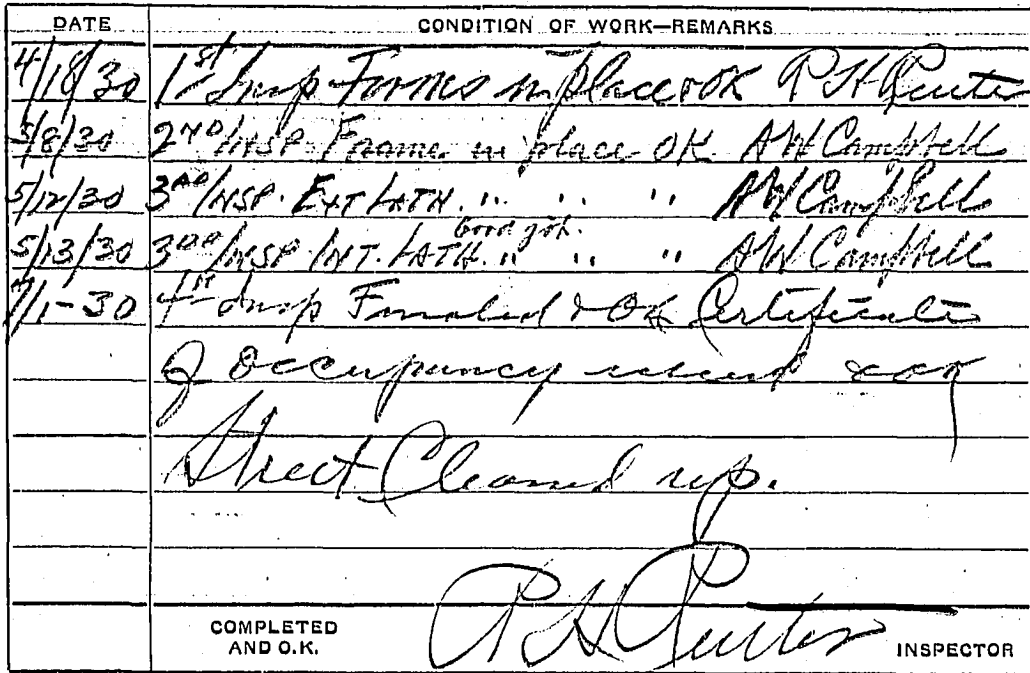 DATE CONDITION OF WORK—REMARKS
4/18/30 1st Insp Forms in place & OK P H
5/8/30 2ND INSP. Frame in place OK AW Campbell
5/12/30 3RD INSP. EXT LATH. " " " AW Campbell
Good job.
5/13/30 3RD INSP. INT. LATH. " " " AW Campbell
7/1-30 4th Insp Finaled & OK Certificate
of Occupancy
Street Cleaned up.
COMPLETED
AND O.K.
INSPECTOR